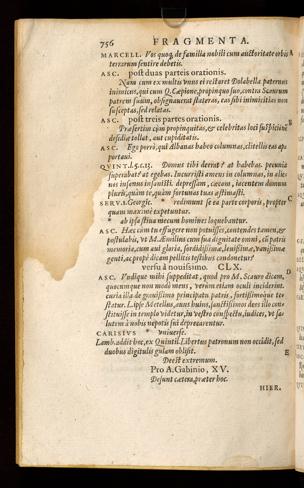 756 FRAGMENTA.
MARCELL. Vos quoq, de familia nobili cum auctoritate orbis A
terrarum sentire debetis.
ASC. post duas parteis orationis.
Nam cum ex multis unus ei restaret Dolabella paternus
inimicus, qui cum Q. Cæpione, propinquo suo, contra Scaurum
patrem suum, obsignauerat flateras, eas sibi inimicitias non
susceptas, sed relatas.
ASC. post treis partes orationis.
Præsertim cum propinquitas, & celebritas loci suspicionẽ
desidiæ tollat, aut cupiditatis.
ASC. Ego porrò, qui Albanas habeo columnas, clitellis eas ap-
portaui.
QVINT. l.5.c.13. Domus tibi deerat? at habebas. pecunia
superabat? at egebas. Incurristi amens in columnas, in alie-
nos insanus insanisti. depressam, cæcam, iacentem domum
pluris, quàm te, quàm fortunas tuas æstimasti.
SERV. 1. Georgic. * redimunt se ea parte corporis, propter
quam maximè expetuntur.
* ab ipsa stina mecum homines loquebantur.
ASC. Hæc cum tu effugere non potuisses, contendes tamen, &
postulabis, vt M. Æmilius cum sua dignitate omni, cũ patris
memoria, cum aui gloria, sordidissimæ, leuissimæ, vanissimæ
genti, ac propè dicam pellitis testibus condonetur?
versu à nouissimo. CLX.
ASC. Vndique mihi suppeditat, quod pro M. Scauro dicam,
quocumque non modò mens, verùm etiam oculi inciderint.
curia illa de grauissimo principatu patris, fortissimoque te-
statur. L. ipse Metellus, auus huius, sanctissimos deos illo con-
stituisse in templo videtur, in vestro conspectu, iudices, vt sa-
lutem à vobis nepotis sui deprecarentur.
CARISIVS * vniuerse.
Lamb. addit hoc, ex Quintil. Libertus patronum non occidit, sed
duobus digitulis gulam oblisit.
Deest extremum.
Pro A. Gabinio, XV.
Desunt cætera, præter hoc.
HIER.